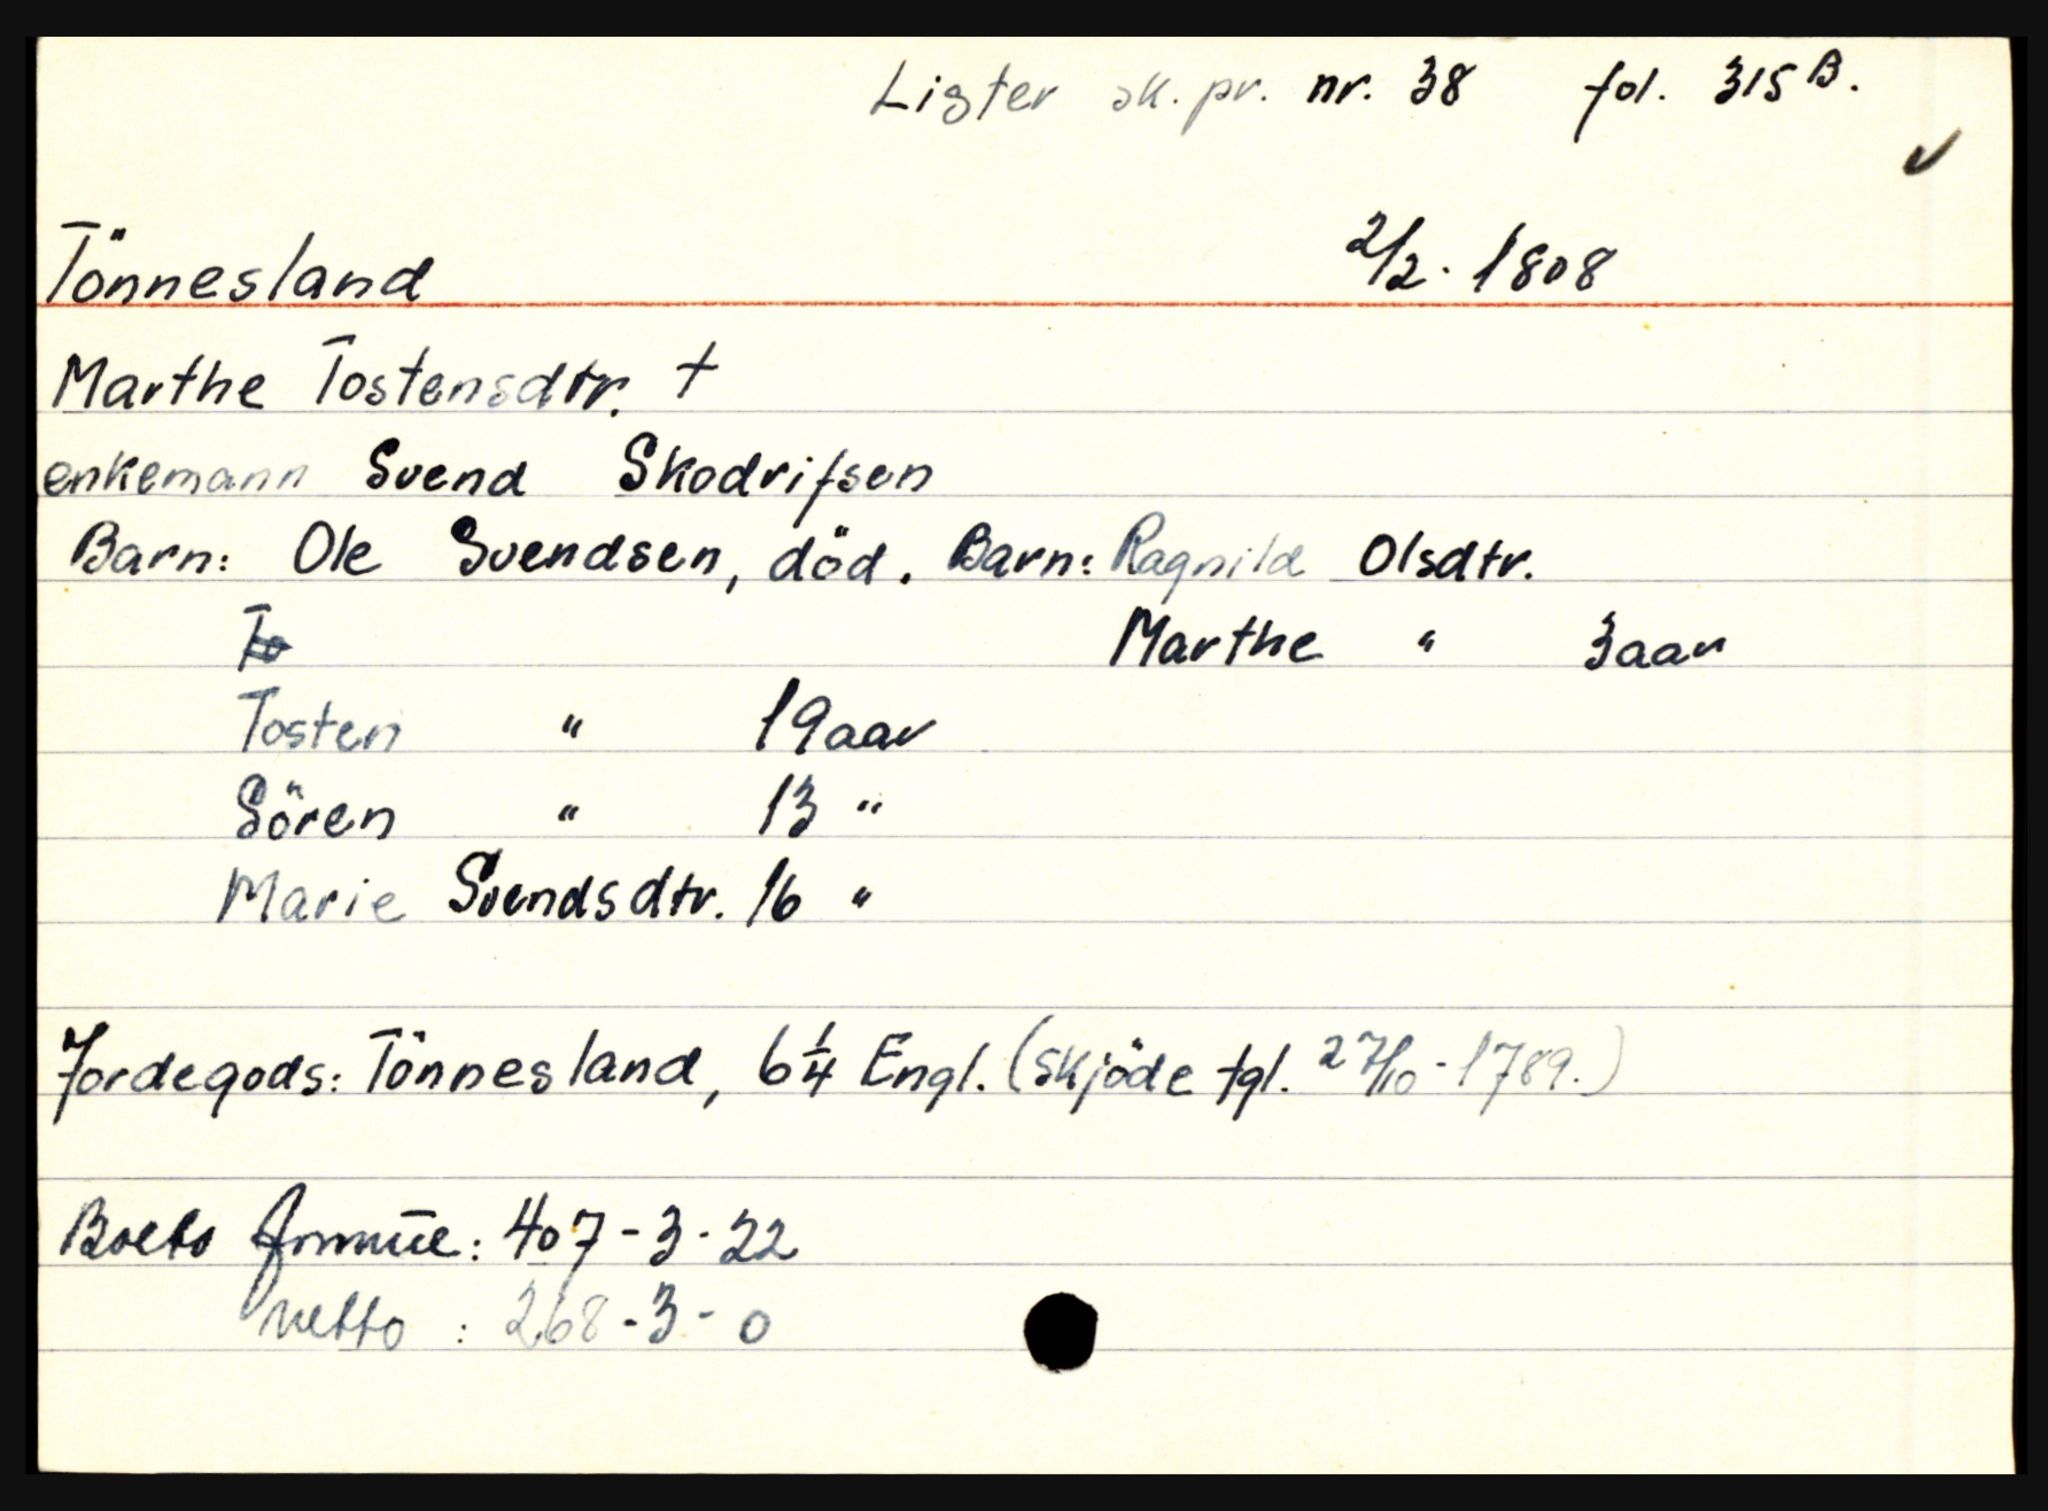 Lister sk. pr. nr. 38 fol. 315 B.
Tönnesland 2/2. 1808
Marthe Tostensdtr. †
enkemann Svend Skodrifsen
Barn: Ole Svendsen, död. Barn: Ragnild Olsdtr.
To Marthe " 3 aar
Tosten " 19 aar
Sören " 13 "
Marie Svendsdtr. 16 "
Jordegods: Tönnesland, 6 1/4 Engl. (skjöde tgl. 27/10 - 1789.)
Boets formue: 407 - 3 - 22
netto : 268 - 3 - 0